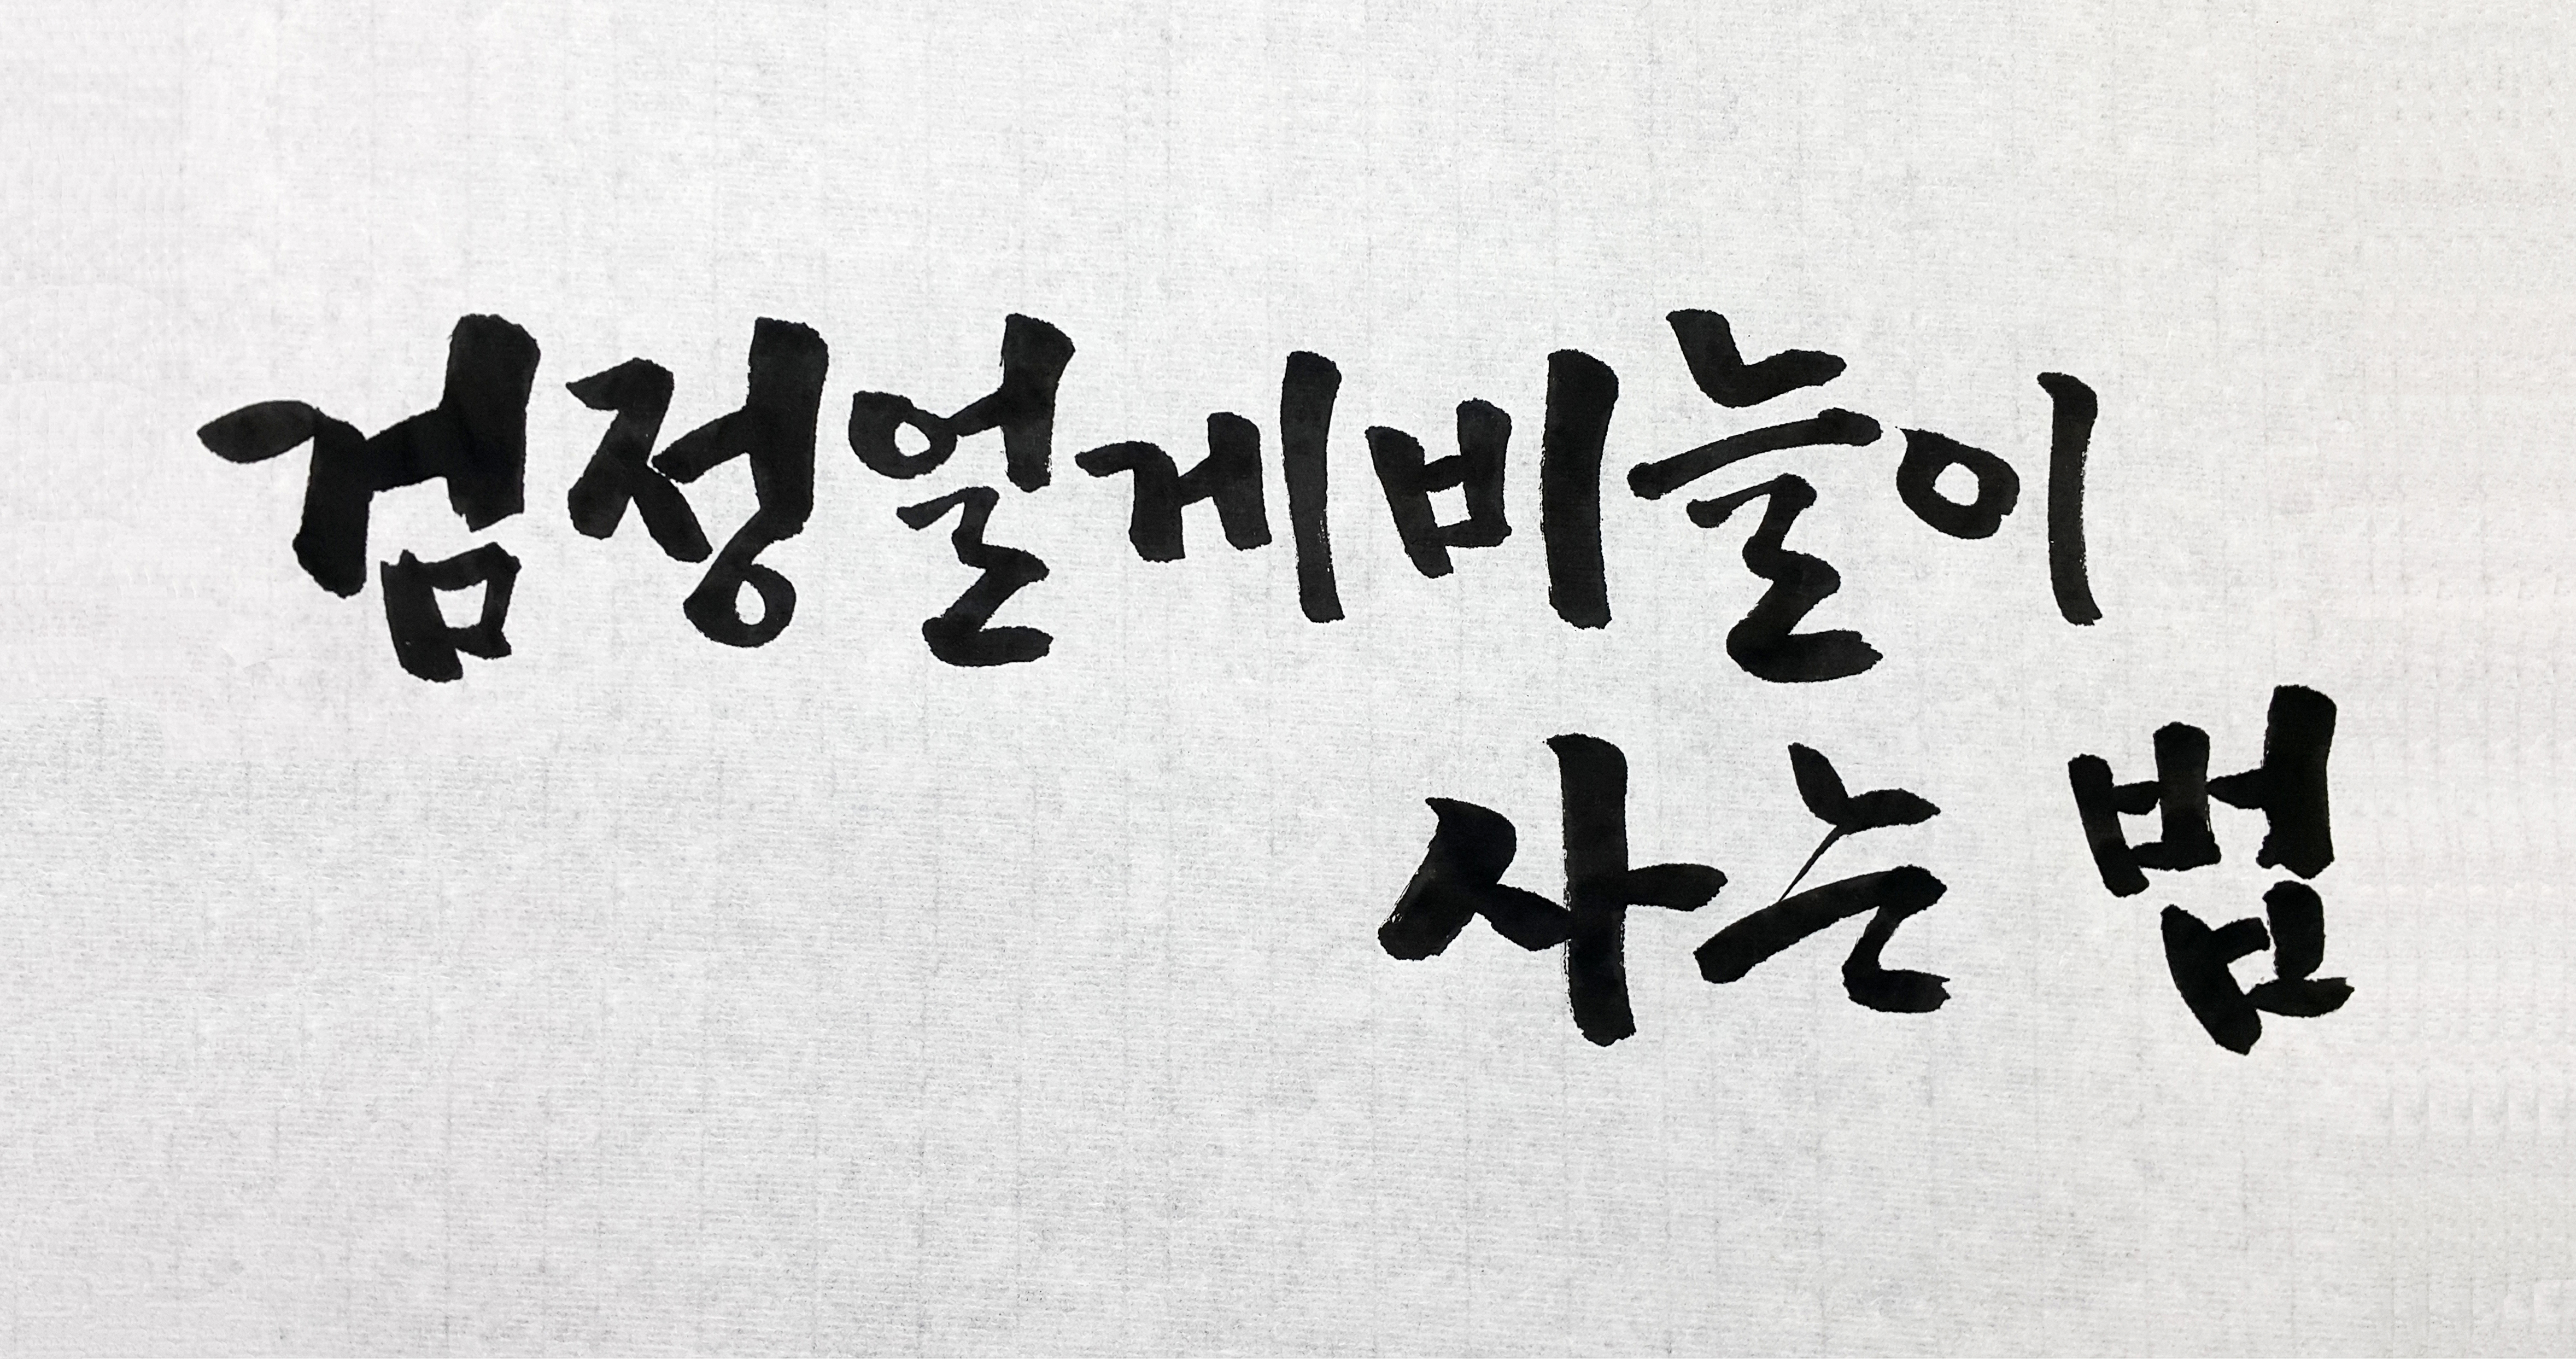 검정얼게비늘이
사는 법